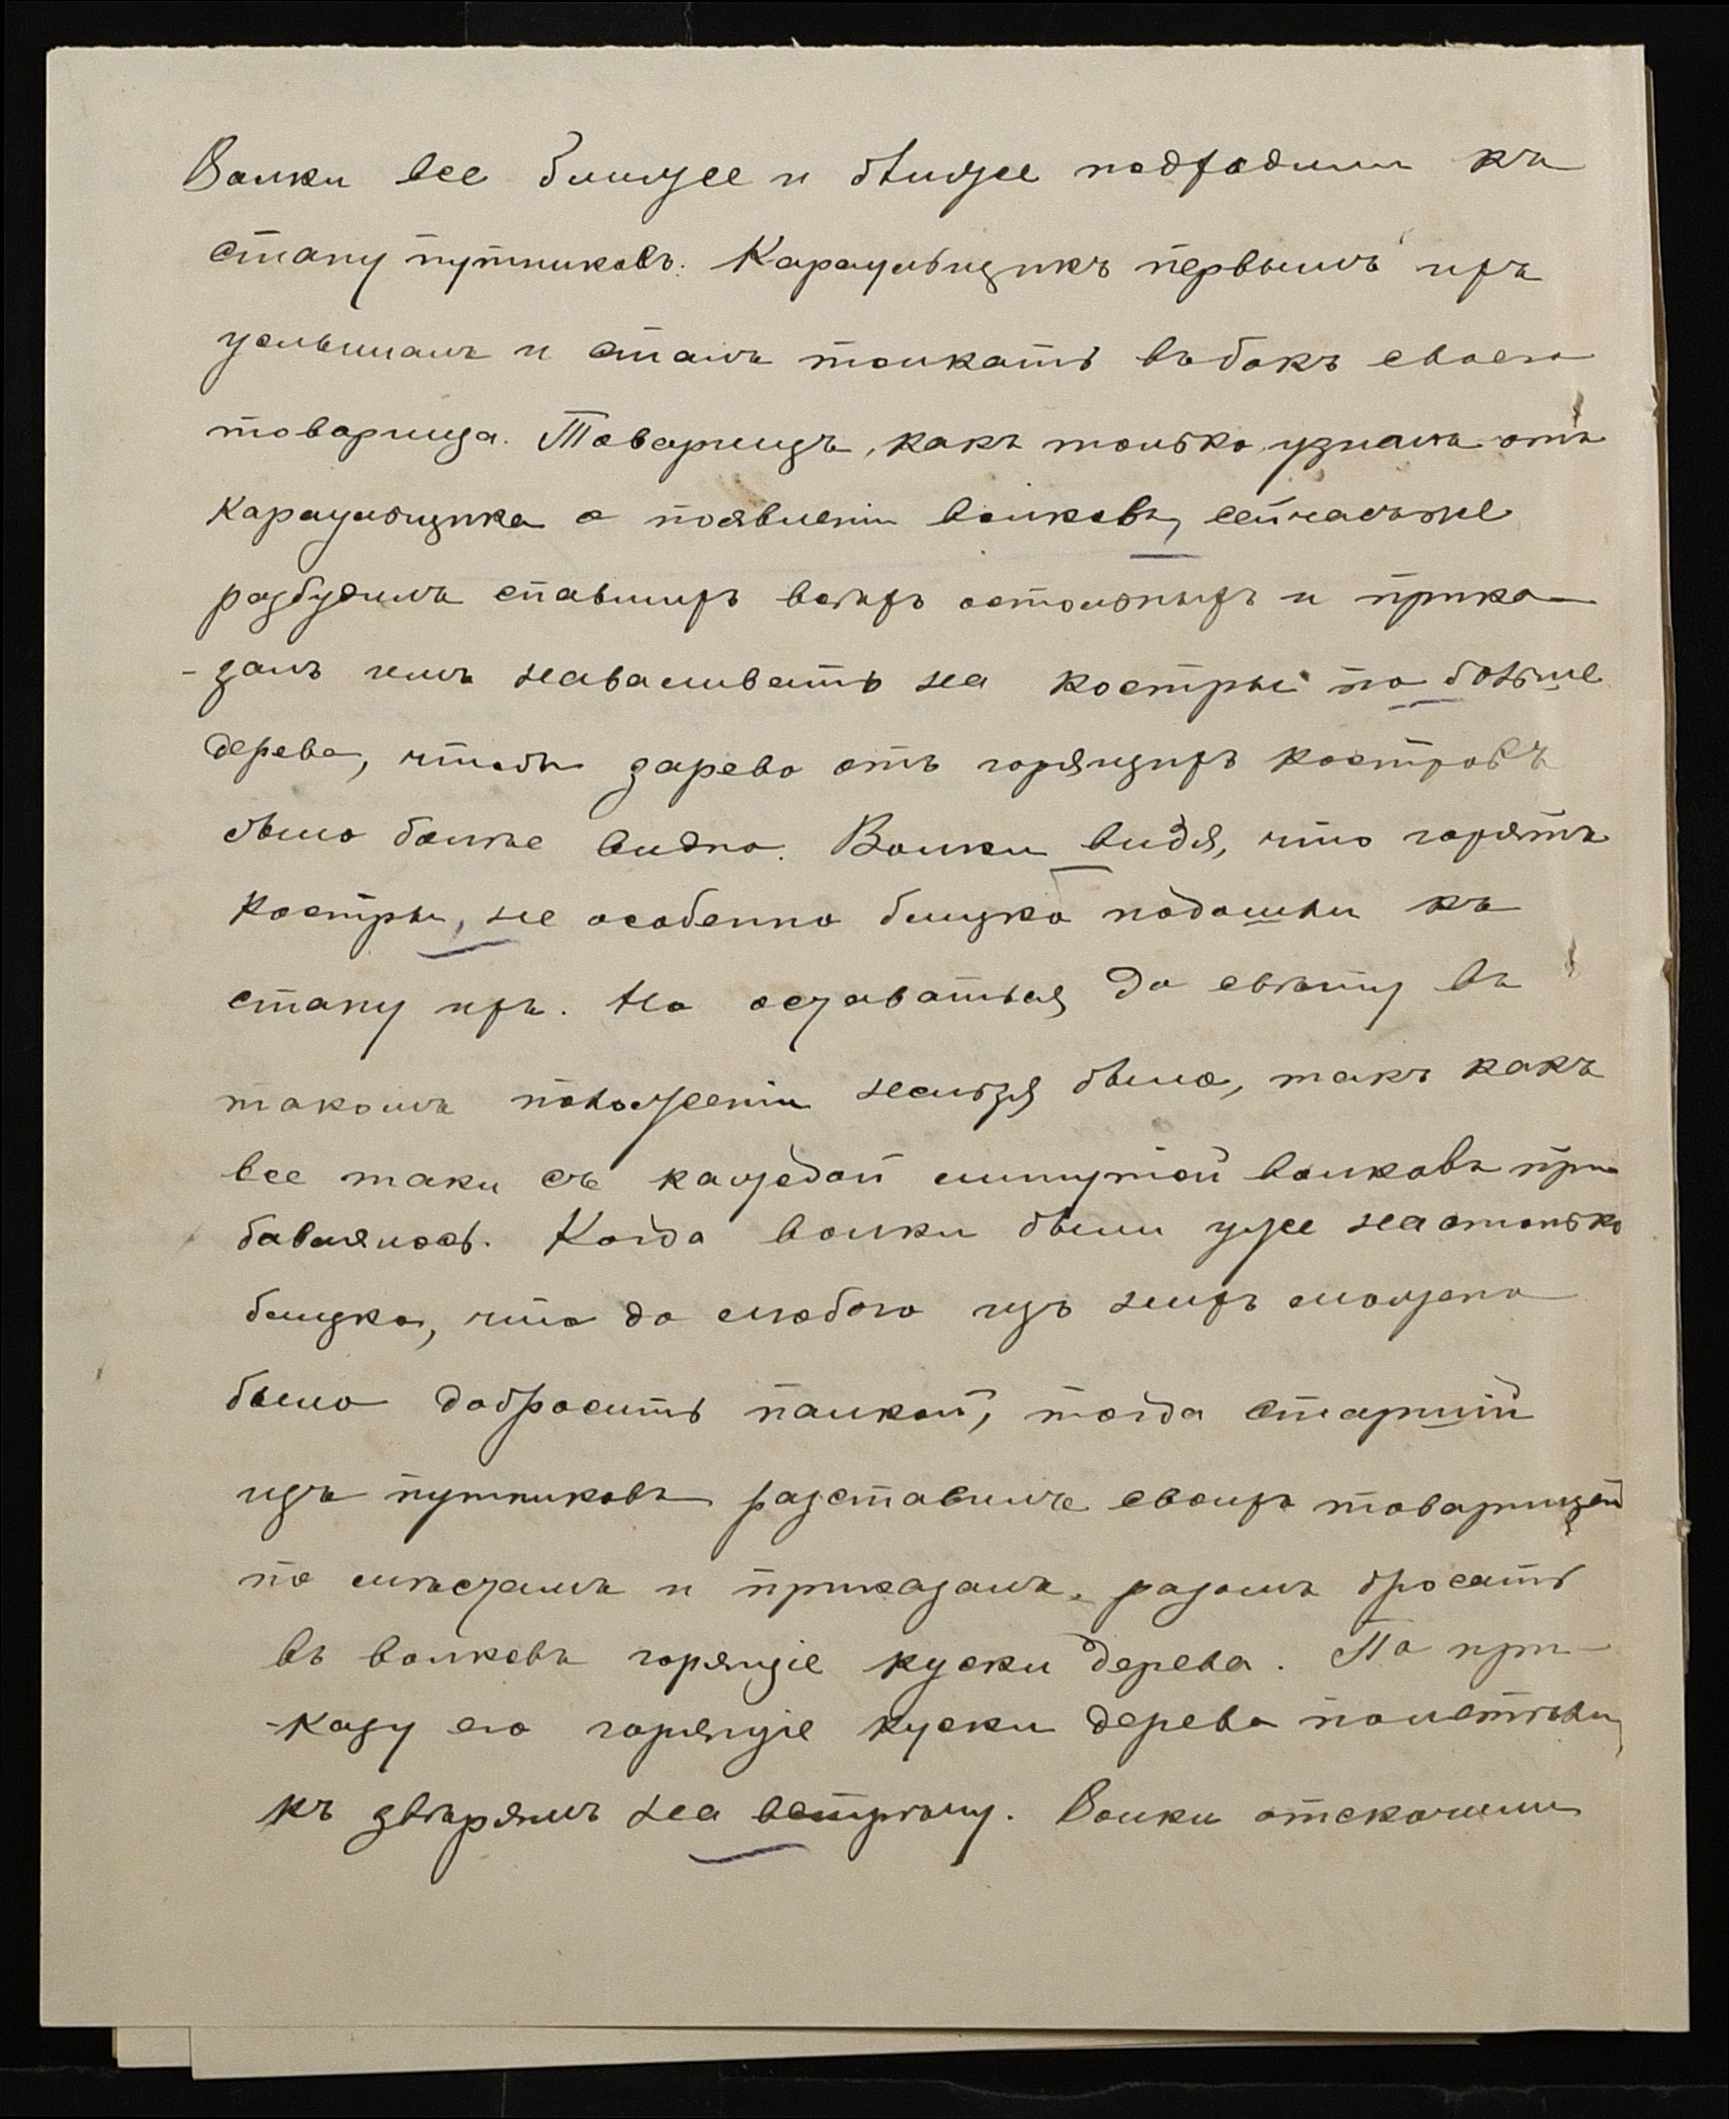 Волки все ближее и ближее подходили къ
стану путниковъ. Караульщикъ первымъ ихъ
услышалъ и сталъ толкать въ бокъ своего
товарища. Товарищъ, какъ только узналъ отъ
караульщика о появленіи волковъ, сейчасъ же
разбудилъ спавшихъ всѣхъ остольныхъ и прика-
-залъ имъ наваливать на костры по больше
дерева, чтобы зарево отъ горящихъ костровъ
было болѣе видно. Волки видя, что горятъ
костры, не особенно близко подошли къ
стану ихъ. Но оставаться до свѣту въ
такомъ положеніи нельзя было, такъ какъ
все таки съ каждой минутой волковъ при
бавлялось. Когда волки были уже на столько
близко, что до любого изъ нихъ можно
было добросить палкой, тогда старшій
изъ путниковъ разставилъ своихъ товарищей
по мѣстамъ и приказалъ разомъ бросать
въ волковъ горящіе куски дерева. По при-
-казу его горящіе куски дерева полетѣли
къ звѣрямъ на встрѣчу. Волки отскочили